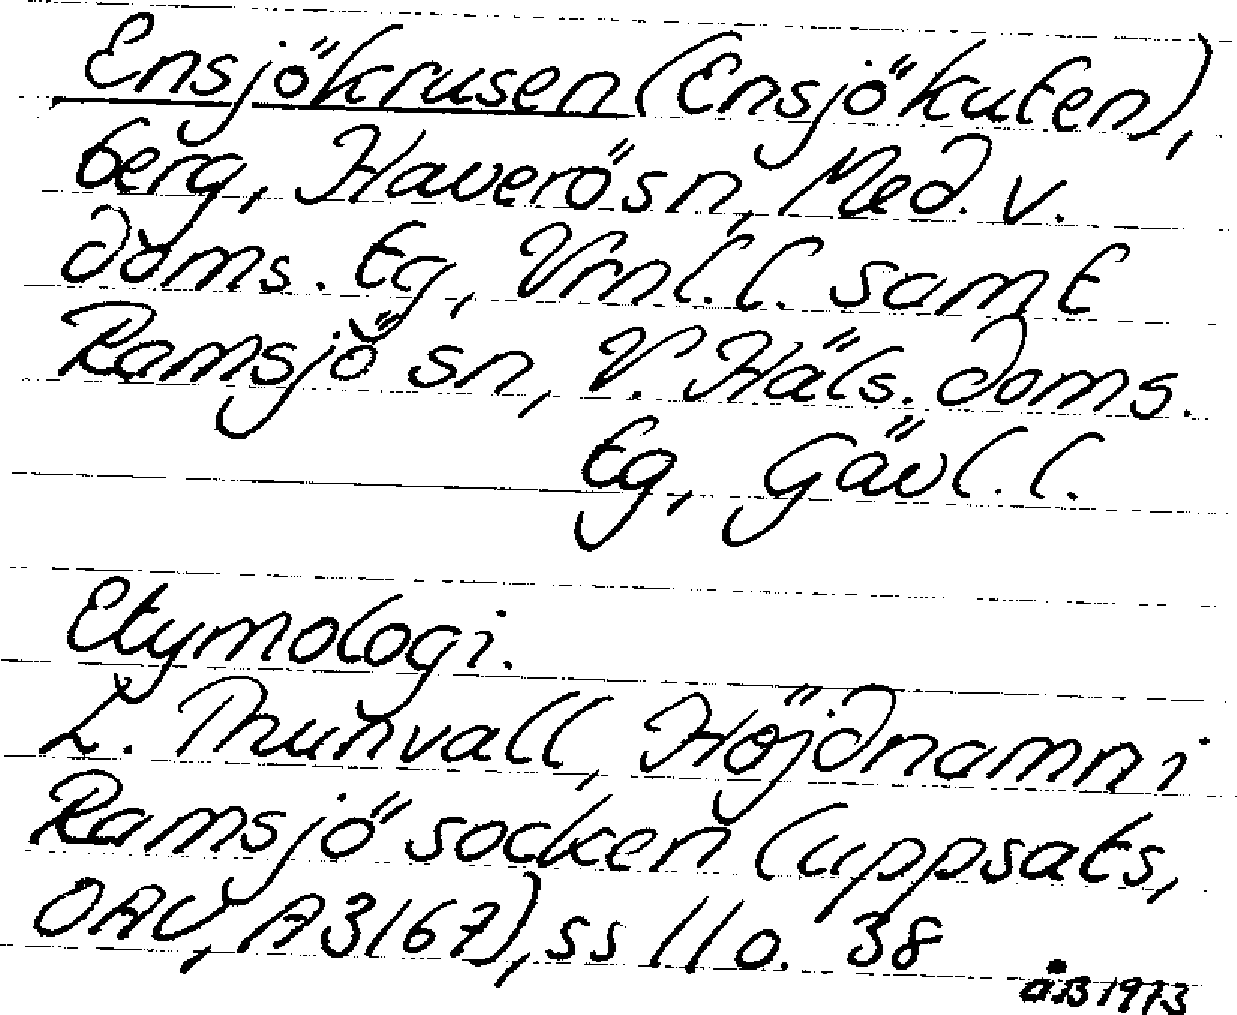 Ensjökrusen (Ensjökuten),
berg, Haverö sn, Med. v.
doms. tg, Vnl. l. samt
Ramsjö sn, V. Häls. doms.
tg, Gävl. l.
Etymologi.
L. Thunvall, Höjdnamn i
Ramsjö socken (uppsats,
OAU, A3167), ss 11 o. 38
ÅB 1973